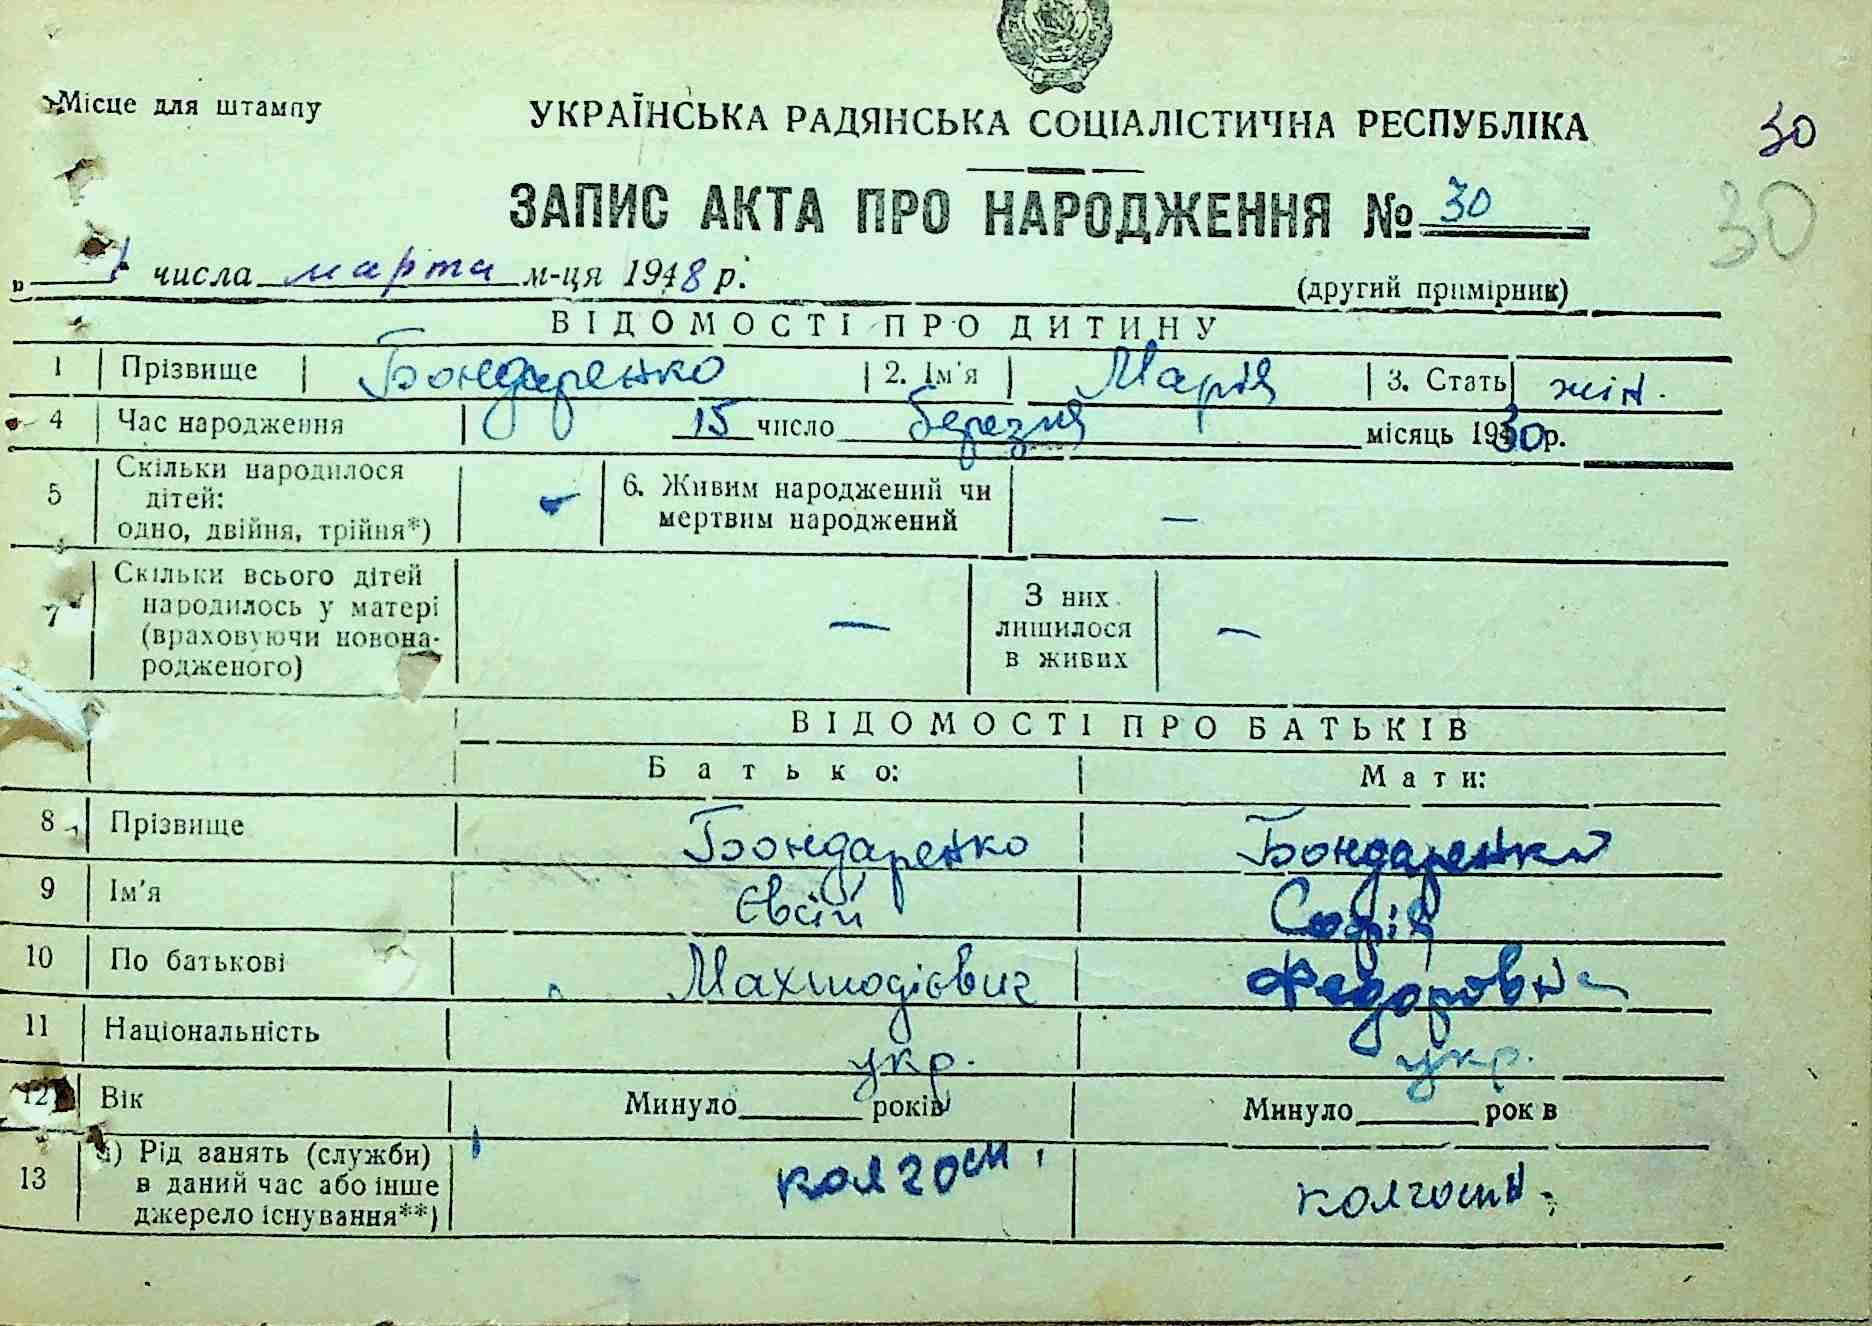 30
Місце для штампу
УКРАЇНСЬКА РАДЯНСЬКА СОЦІАЛІСТИЧНА РЕСПУБЛІКА
ЗАПИС АКТА ПРО НАРОДЖЕННЯ № 30
30
„ числа марта м-ця 1948 р.
(другий примірник)
ВІДОМОСТІ ПРО ДИТИНУ
1 Прізвище Бондаренко 2. Ім'я Марія 3. Стать жін.
4 Час народження 15 число березня місяць 1930 р.
5 Скільки народилося
дітей:
одно, двійня, трійня*)
6. Живим народжений чи
мертвим народжений —
7 Скільки всього дітей
народилось у матері
(враховуючи новона-
родженого) —
З них
лишилося
в живих —
ВІДОМОСТІ ПРО БАТЬКІВ
Батько: Мати:
8 Прізвище Бондаренко Бондаренко
9 Ім'я Євсій Софія
10 По батькові Федоровна
11 Національність укр. укр.
12 Вік Минуло років Минуло років
13 а) Рід занять (служби)
в даний час або інше
джерело існування**)
колгосп. колгосп.